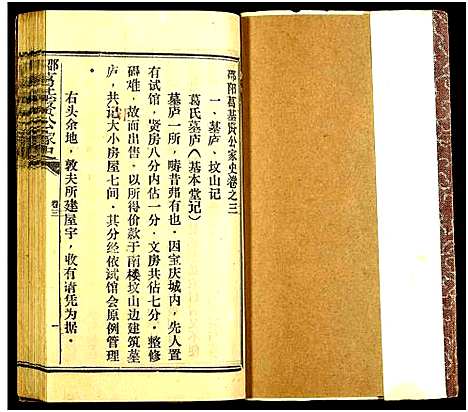 邵阳葛基贤公家史卷之三
一、墓庐、坟山记
葛氏墓庐（基本堂记）
墓庐一所，畴昔弗有也。因宝庆城内，先人置
有试馆，贤房八分内估一分，文房共估七分。整修
碍难，故而出售。以所得价款于南楼坟山边建筑墓
庐，共记大小房屋七间。其分经依试馆会原例管理
右头余地，敦夫所建屋宇，收有请凭为据。
卷三
一